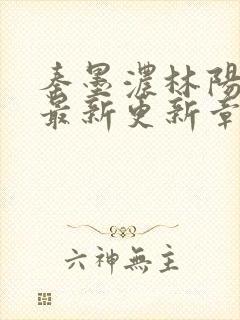 秦墨濃林陽
最新更新章
六神無主